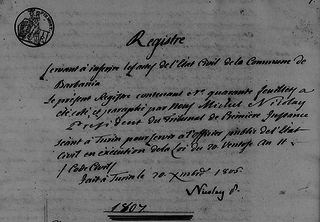 Registre
servant à inscrire les actes de l'Etat Civil de la Commune de
Barbania
Le présent Registre contenant et quarante feuillets a
été coté et paraphé par Nous Michel Nicolay
Président du Tribunal de Première Instance
séant à Turin pour servir à l'officier public de l'Etat
Civil en exécution de la Loi du 20 Ventose An 11
/ Code Civil /
Fait à Turin le 20 Xmbre 1806
Nicolay P.
1807